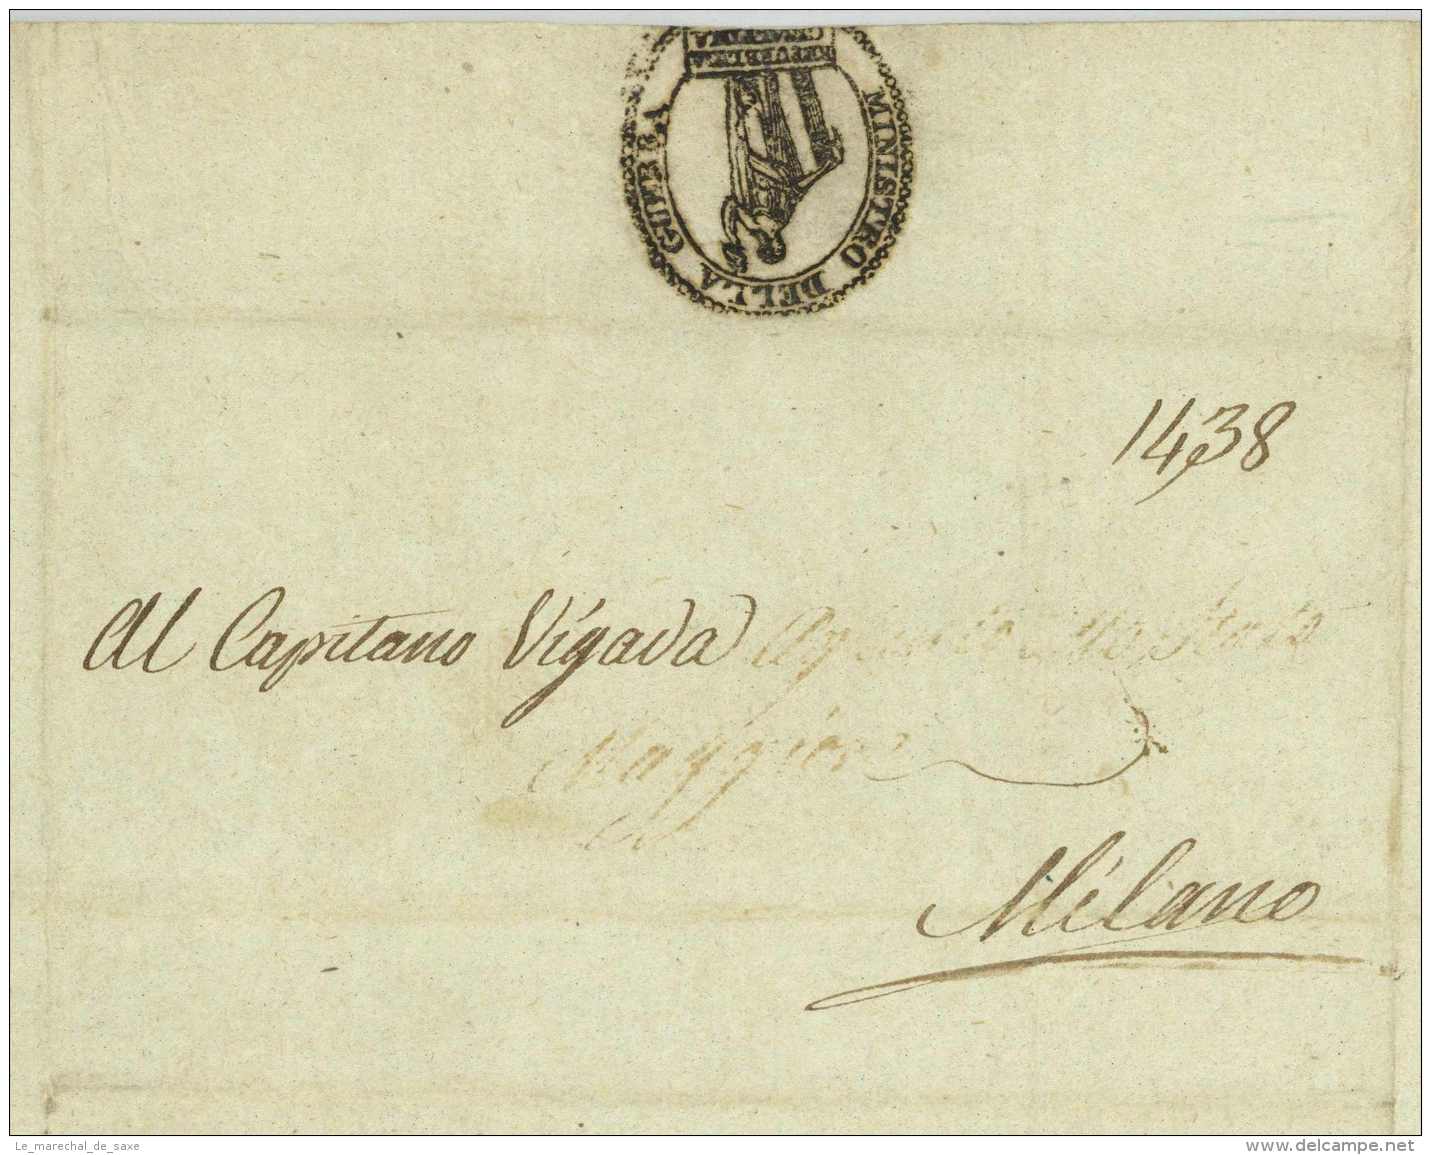 MINISTRO DELLA GUERRA
REPUBBLICA
CISALPINA
1438
Al Capitano Vigada
Maggiore
Milano
Le_marechal_de_saxe
www.delcampe.net